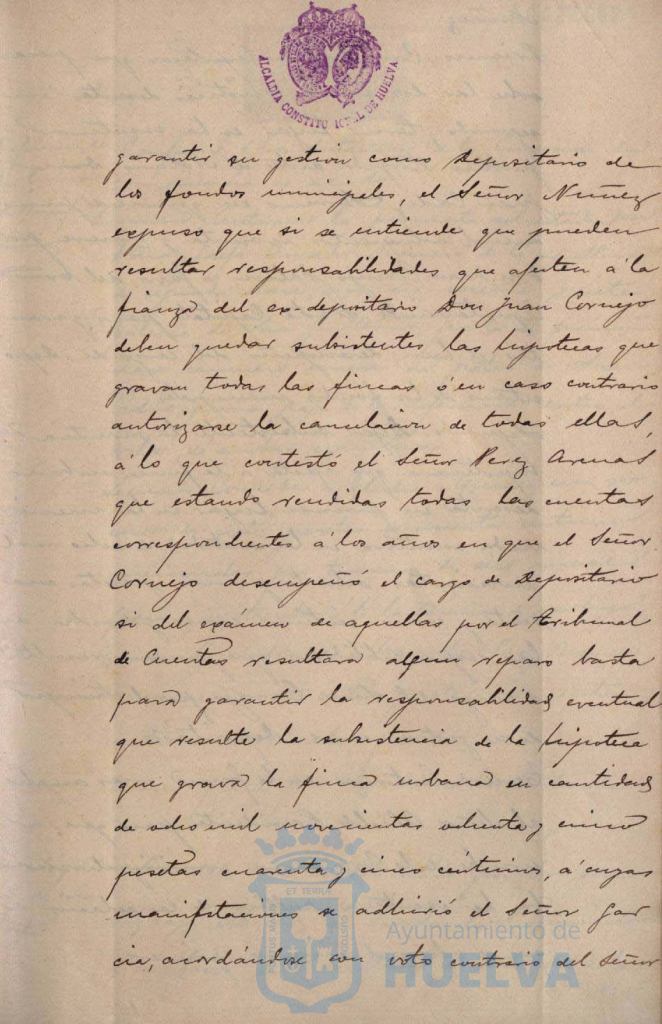 ALCALDIA CONSTITUCIONAL DE HUELVA
garantir su gestion como Depositario de
los fondos municipales, el Señor Nuñez
expuso que si se entiende que pueden
resultar responsabilidades que afecten á la
fianza del ex-depositario Don Juan Cornejo
deben quedar subsistentes las hipotecas que
gravan todas las fincas ó en caso contrario
autorizarse la cancelacion de todas ellas,
á lo que contestó el Señor Perez Arenas
que estando rendidas todas las cuentas
correspondientes á los años en que el Señor
Cornejo desempeñó el cargo de Depositario
si del exámen de aquellas por el Tribunal
de Cuentas resultara algun reparo basta
para garantir la responsabilidad eventual
que resulte la subsistencia de la hipoteca
que grava la finca urbana en cantidad
de ocho mil novecientas ochenta y cinco
pesetas cuarenta y cinco céntimos, á cuyas
manifestaciones se adhirió el Señor Gar
cia, acordándose con voto contrario del Señor
ET TERRA
Ayuntamiento de
HUELVA